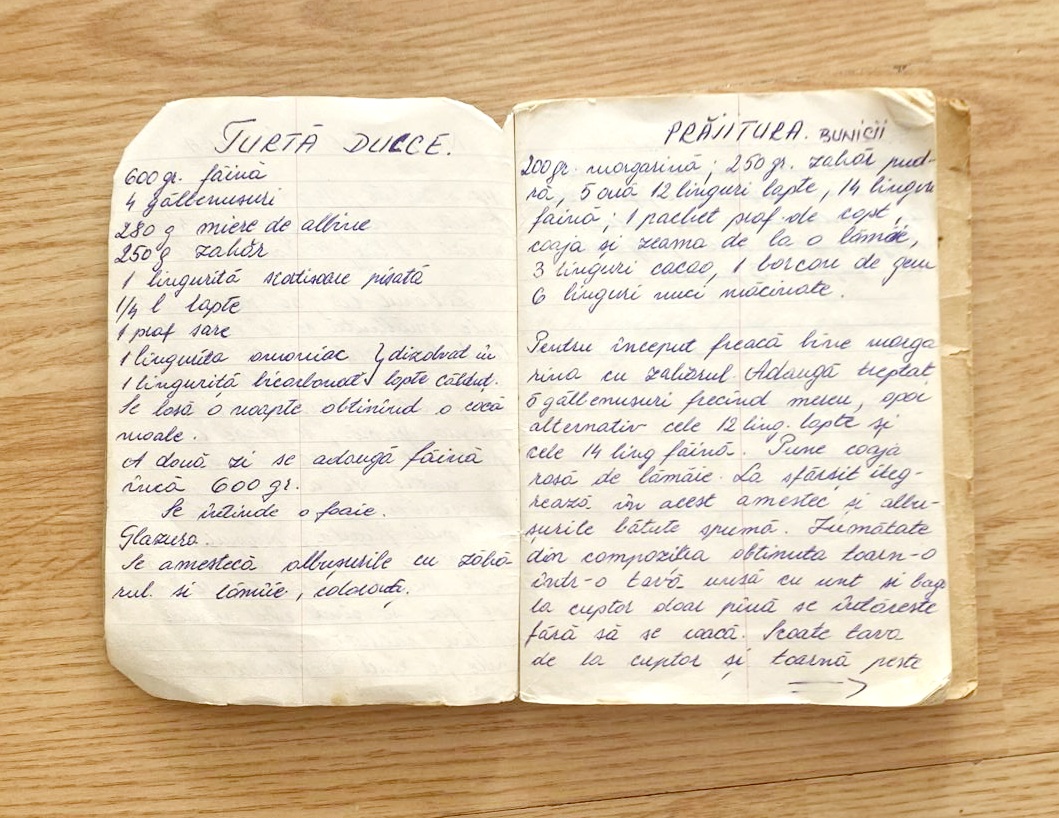 TURTĂ DULCE.
600 gr. făină
4 gălbenusuri
280 g miere de albine
250 g zahăr
1 lingurită scortisoare pisată
1/4 l lapte
1 praf sare
1 lingurita amoniac } dizolvat în
1 lingurită bicarbonat lapte căldut.
Se lasă o noapte obtinînd o cocă
moale.
A două zi se adaugă făină
încă 600 gr.
Se întinde o foaie.
Glazura.
Se amestecă albusurile cu zăhă-
rul si lămîie, coloranţi.
PRĂJITURA. BUNICII
200 gr. margarină; 250 gr. zahăr pud-
ră, 5 ouă 12 linguri lapte, 14 linguri
faină; 1 pachet praf de copt,
coaja şi zeama de la o lămâie,
3 linguri cacao, 1 borcan de gem
6 linguri nuci măcinate.
Pentru început freacă bine marga
rina cu zahărul. Adaugă treptat
5 gălbenusuri frecînd mereu, apoi
alternativ cele 12 ling. lapte şi
cele 14 ling făină. Pune coaja
rasă de lămâie. La sfârsit iteg-
rează în acest amestec şi albu-
şurile bătute spumă. Jumătate
din compozitia obtinuta toarn-o
într-o tavă unsă cu unt si bag
la cuptor doar pînă se întăreste
fără să se coacă. Scoate tava
de la cuptor şi toarnă peste